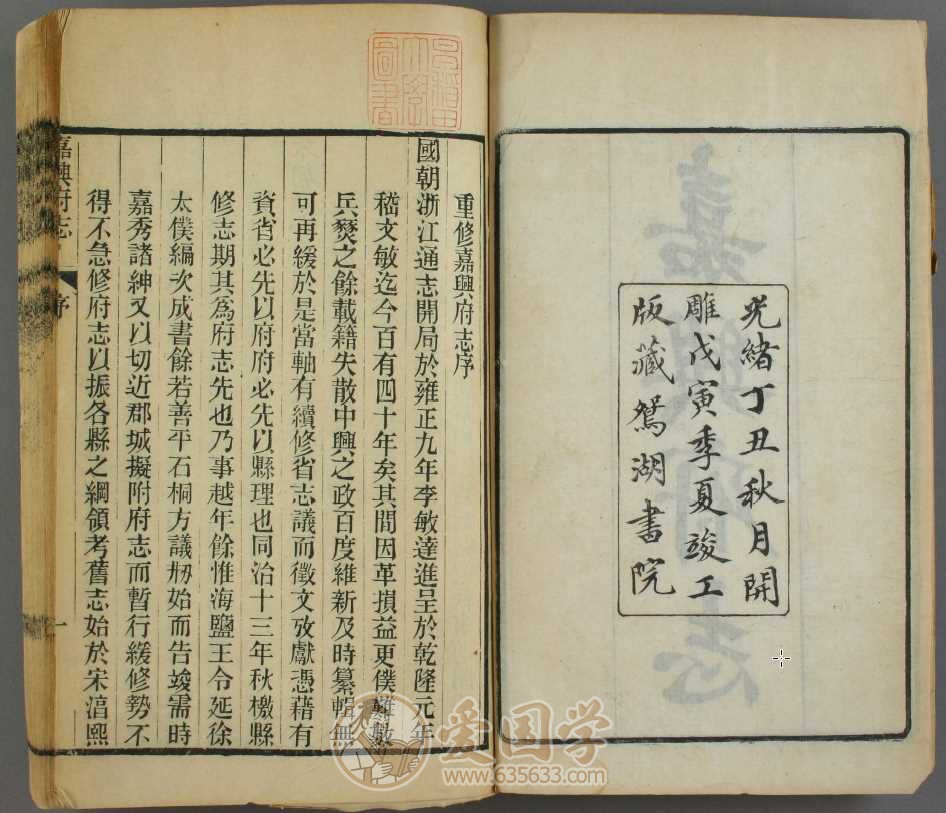 光緒丁丑秋月開
雕戊寅季夏竣工
版藏鴛湖書院
嘉興府志
重修嘉興府志序
國朝浙江通志開局於雍正九年李敏達進呈於乾隆元年
嵇文敏迄今百有四十年矣其間因革損益更僕難數
兵燹之餘載籍失散中興之政百度維新及時纂輯無
可再緩於是當軸有續修省志議而徵文攷獻憑藉有
資省必先以府府必先以縣理也同治十三年秋檄縣
修志期其爲府志先也乃事越年餘惟海鹽王令延徐
太僕編次成書餘若善平石桐方議刱始而告竣需時
嘉秀諸紳又以切近郡城擬附府志而暫行緩修勢不
得不急修府志以振各縣之綱領考舊志始於宋湻熙
嘉興府志
序
一
早稻田
大學
圖書
爱国学
www.635633.com